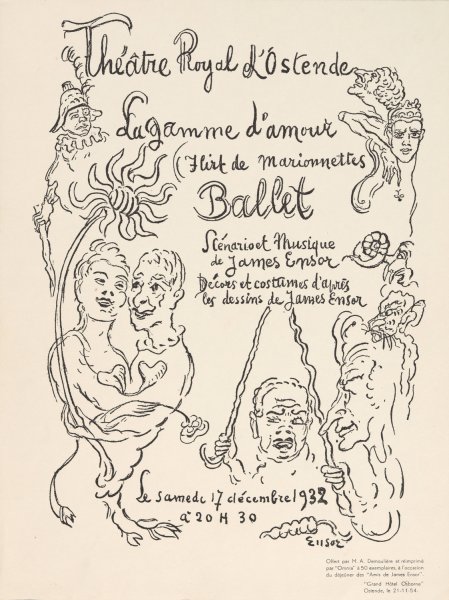 Théâtre Royal d'Ostende
La gamme d'amour
(Flirt de Marionnettes
Ballet
Scénario et Musique
de James Ensor
Décors et costumes d'après
les dessins de James Ensor
Le samedi 17 décembre 1932
à 20 H 30
Ensor
Offert par M. A. Demoulière et réimprimé
par "Omnia" à 50 exemplaires, à l'occasion
du déjeûner des "Amis de James Ensor".
"Grand Hôtel Osborne"
Ostende, le 21-11-54.